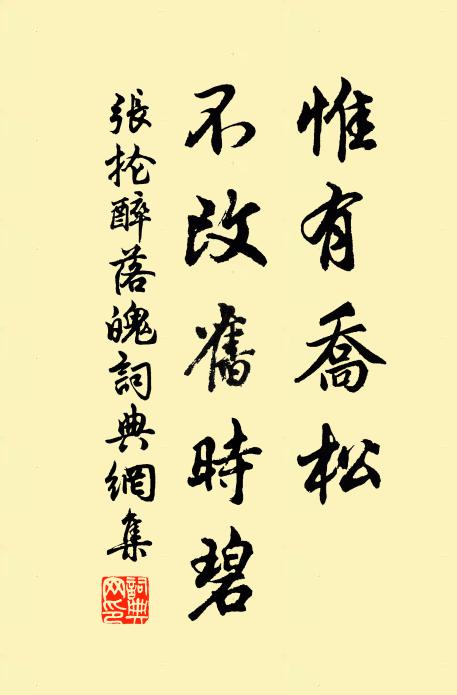 惟有喬松
不改舊時碧
張掄醉落魄詞典網集
詞典網印